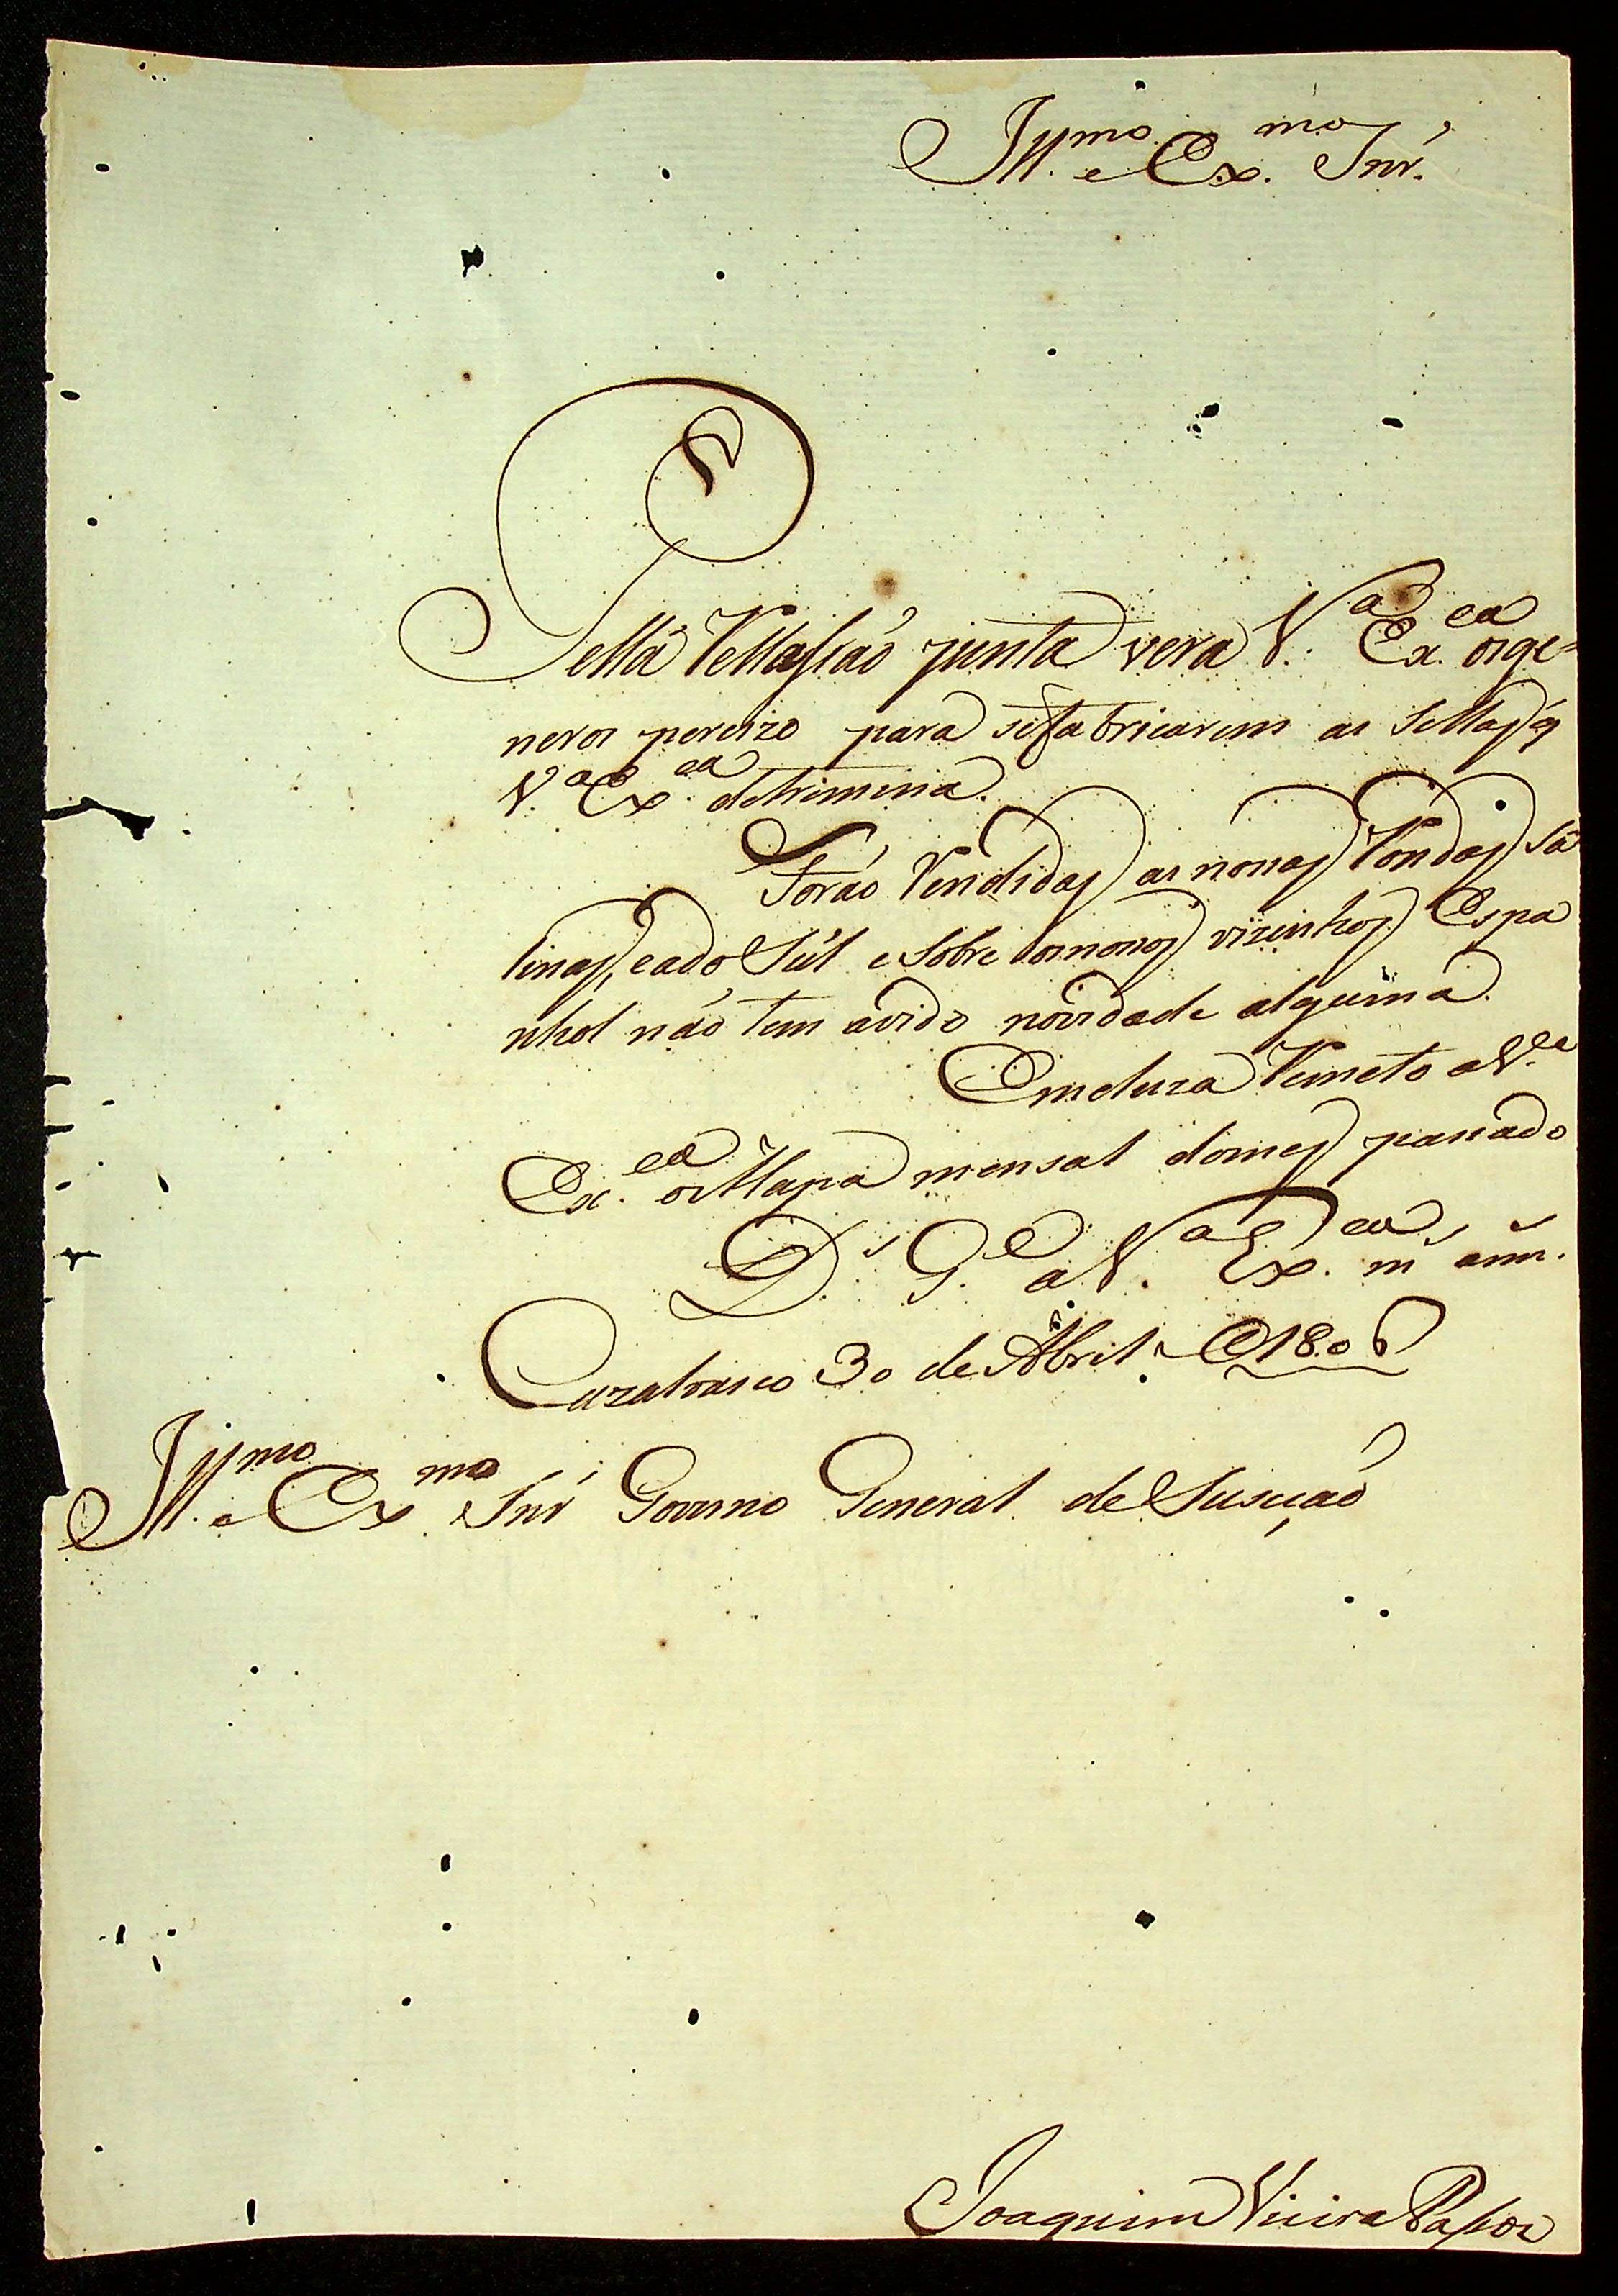 Ill.mo e Ex.mo Snr.
Pella Rellasaó junta vera V.a Ex.ca os ge=
neros percizo para se fabricarem as Sellas q
V.a Ex.ca detrimina.
Foráo Rendidas as nosas Rondas Sa
linas, e a do Sul e Sobre os nosos vizinhos Espa
nhol náo tem avido novidade alguma.
Incluza Remeto a V.a
Ex.ca os Mapa mensal do mes pasado
D.s G.e a V.a Ex.ca m.s ann.s
Cazalvasco 30 de Abril de 1806
Ill.mo e Ex.mo Snr Governo General de Susecaó
Joaquim Vieira Passos